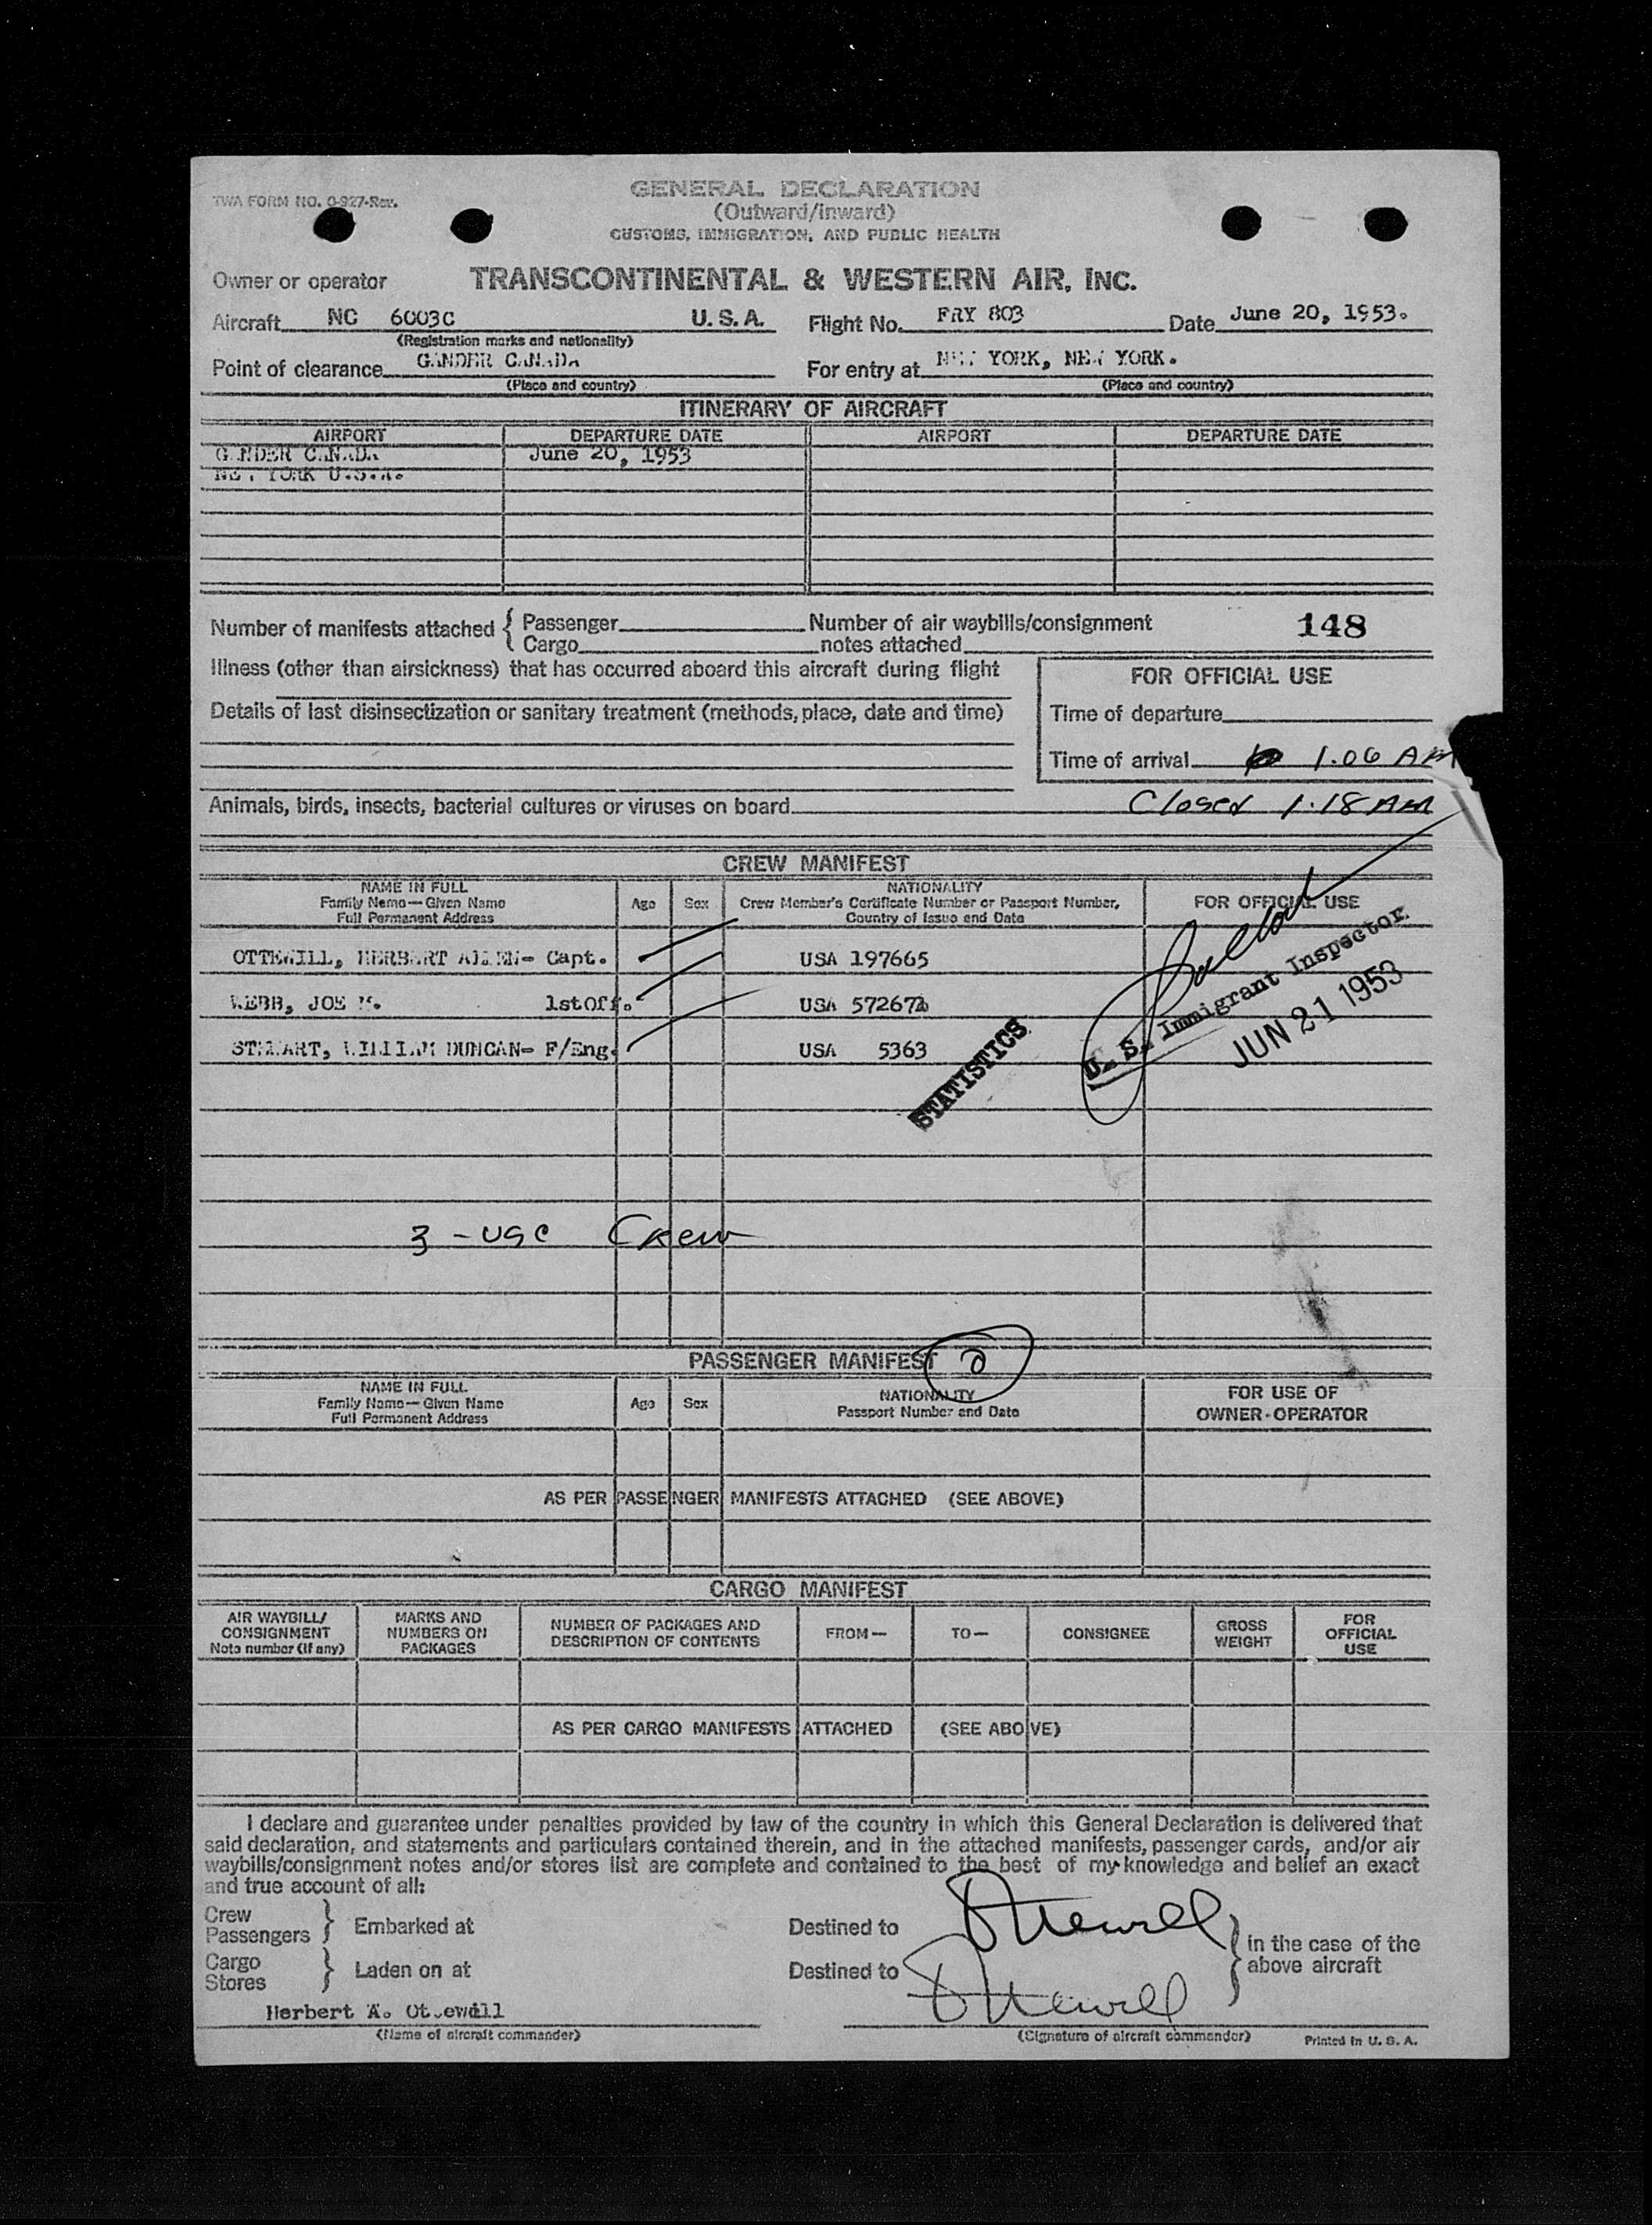 TWA FORM NO. O-927-Rev.
GENERAL DECLARATION
(Outward/Inward)
CUSTOMS, IMMIGRATION, AND PUBLIC HEALTH
Owner or operator TRANSCONTINENTAL & WESTERN AIR, INC.
Aircraft NC 6003C U.S.A. Flight No. FRY 803 Date June 20, 1953.
(Registration marks and nationality)
Point of clearance GANDER CANADA For entry at NEW YORK, NEW YORK.
(Place and country) (Place and country)
ITINERARY OF AIRCRAFT
AIRPORT DEPARTURE DATE AIRPORT DEPARTURE DATE
GANDER CANADA June 20, 1953
NEW YORK U.S.A.
Number of manifests attached { Passenger Number of air waybills/consignment 148
Cargo notes attached
Illness (other than airsickness) that has occurred aboard this aircraft during flight
FOR OFFICIAL USE
Details of last disinsectization or sanitary treatment (methods, place, date and time)
Time of departure
Time of arrival 1.06 AM
Animals, birds, insects, bacterial cultures or viruses on board Closed 1.18 AM
CREW MANIFEST
NAME IN FULL Family Name—Given Name Full Permanent Address Age Sex NATIONALITY Crew Member's Certificate Number or Passport Number, Country of Issue and Date FOR OFFICIAL USE
OTTEWILL, HERBERT ALLEN- Capt. USA 197665
WEBB, JOE M. 1stOff. USA 572672
STEWART, WILLIAM DUNCAN- F/Eng. USA 5363
U. S. Immigrant Inspector
JUN 21 1953
STATISTICS
3 - USC Crew
PASSENGER MANIFEST 0
NAME IN FULL Family Name—Given Name Full Permanent Address Age Sex NATIONALITY Passport Number and Date FOR USE OF OWNER-OPERATOR
AS PER PASSENGER MANIFESTS ATTACHED (SEE ABOVE)
CARGO MANIFEST
AIR WAYBILL/ CONSIGNMENT Note number (if any) MARKS AND NUMBERS ON PACKAGES NUMBER OF PACKAGES AND DESCRIPTION OF CONTENTS FROM— TO— CONSIGNEE GROSS WEIGHT FOR OFFICIAL USE
AS PER CARGO MANIFESTS ATTACHED (SEE ABOVE)
I declare and guarantee under penalties provided by law of the country in which this General Declaration is delivered that
said declaration, and statements and particulars contained therein, and in the attached manifests, passenger cards, and/or air
waybills/consignment notes and/or stores list are complete and contained to the best of my knowledge and belief an exact
and true account of all:
Crew
Passengers } Embarked at Destined to Ottewill
Cargo
Stores } Laden on at Destined to Ottewill } in the case of the above aircraft
Herbert A. Ottewill
(Name of aircraft commander) (Signature of aircraft commander) Printed in U. S. A.